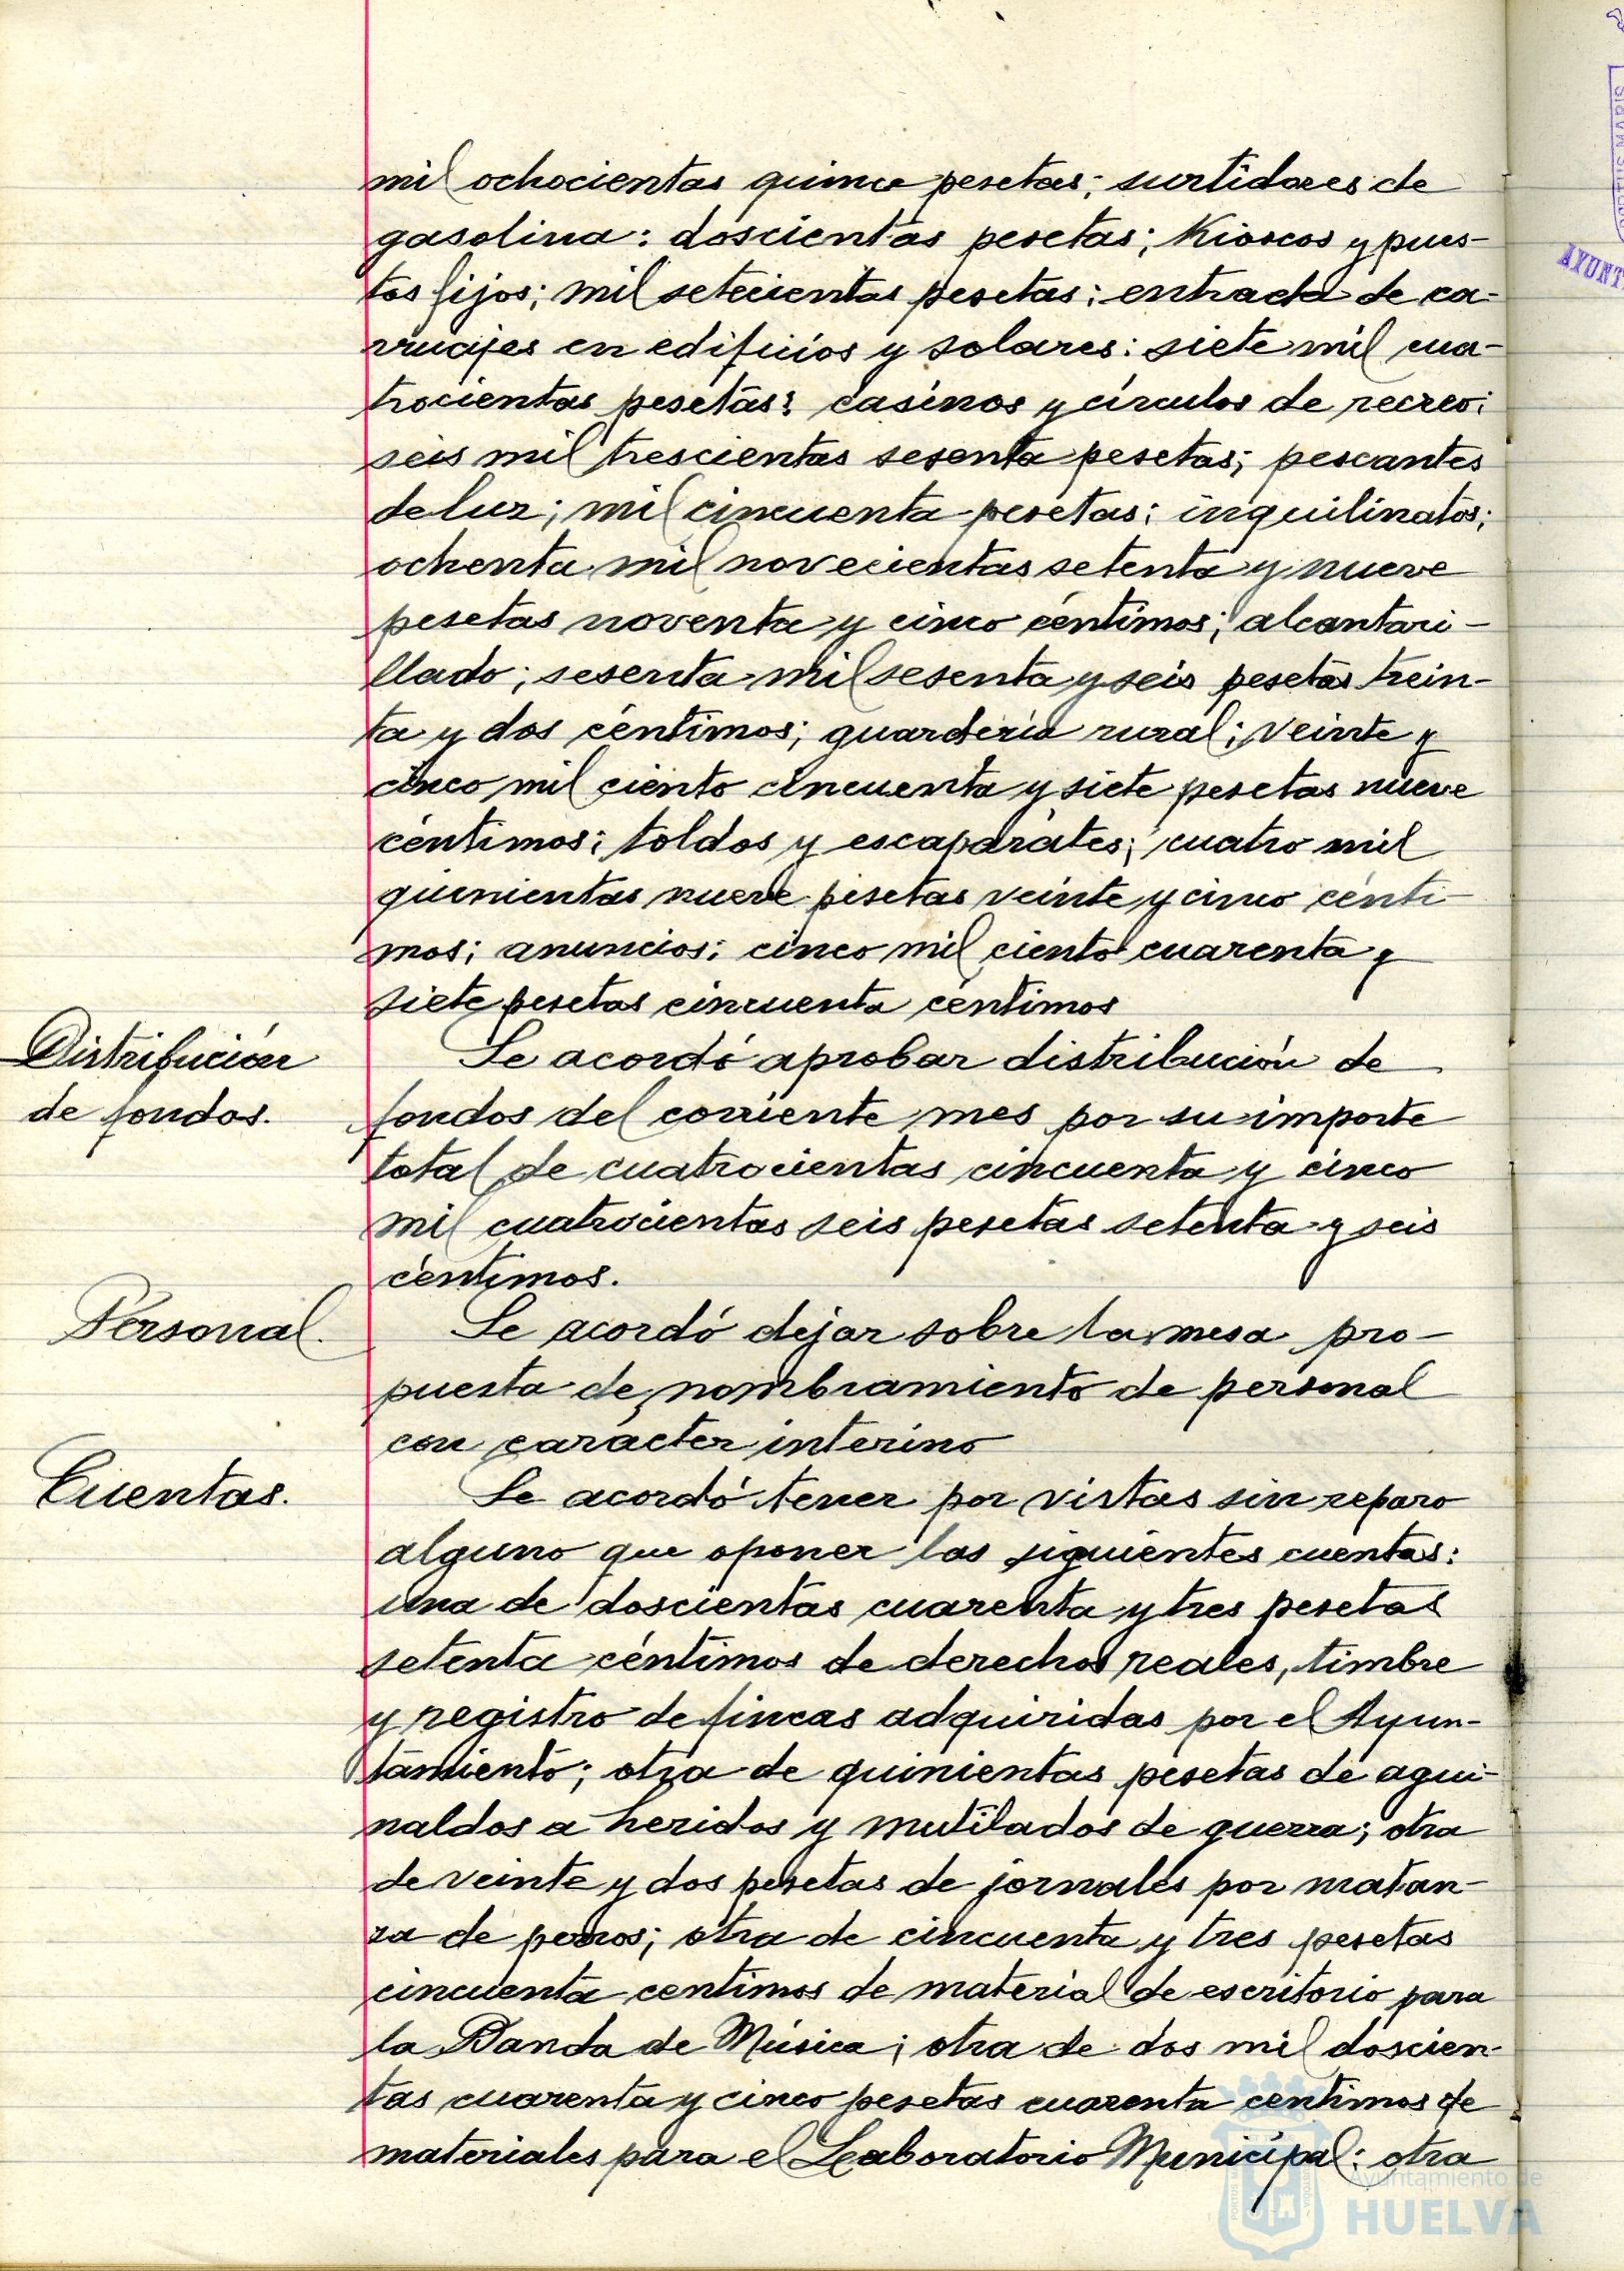 mil ochocientas quince pesetas; surtidores de
gasolina: doscientas pesetas; Kioscos y pues-
tos fijos; mil setecientas pesetas; entrada de ca-
rruajes en edificios y solares: siete mil cua-
trocientas pesetas; casinos y círculos de recreo:
seis mil trescientas sesenta pesetas; pescantes
de luz; mil cincuenta pesetas; inquilinatos;
ochenta mil novecientas setenta y nueve
pesetas noventa y cinco céntimos; alcantari-
llado; sesenta mil sesenta y seis pesetas trein-
ta y dos céntimos; guardería rural; veinte y
cinco mil ciento cincuenta y siete pesetas nueve
céntimos; toldos y escaparates; cuatro mil
quinientas nueve pesetas veinte y cinco cénti-
mos; anuncios; cinco mil ciento cuarenta y
siete pesetas cincuenta céntimos
Distribución
de fondos.
Se acordó aprobar distribución de
fondos del corriente mes por su importe
total de cuatrocientas cincuenta y cinco
mil cuatrocientas seis pesetas setenta y seis
céntimos.
Personal.
Se acordó dejar sobre la mesa pro-
puesta de nombramiento de personal
con carácter interino
Cuentas.
Se acordó tener por vistas sin reparo
alguno que oponer las siguientes cuentas:
una de doscientas cuarenta y tres pesetas
setenta céntimos de derechos reales, timbre
y registro de fincas adquiridas por el Ayun-
tamiento; otra de quinientas pesetas de agui-
naldos a heridos y mutilados de guerra; otra
de veinte y dos pesetas de jornales por matan-
za de perros; otra de cincuenta y tres pesetas
cincuenta centimos de material de escritorio para
la Banda de Música; otra de dos mil doscien-
tas cuarenta y cinco pesetas cuarenta centimos de
materiales para el Laboratorio Municipal; otra
Ayuntamiento de
HUELVA
AYUNT